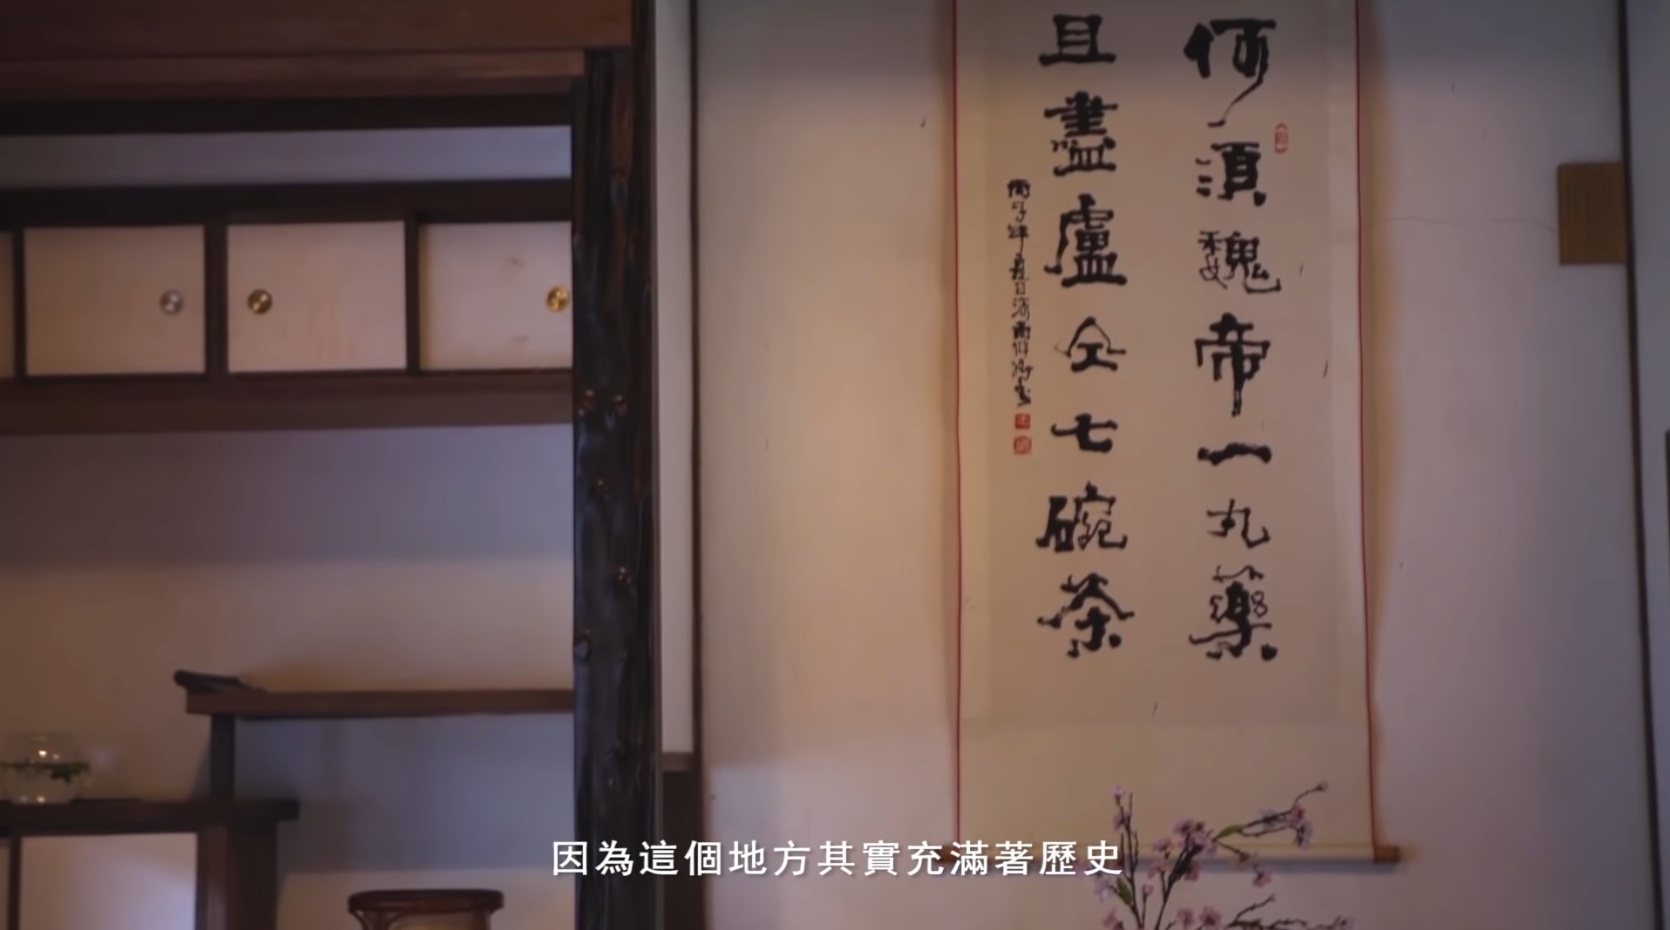 何須魏帝一丸藥
且盡盧仝七碗茶
因為這個地方其實充滿著歷史